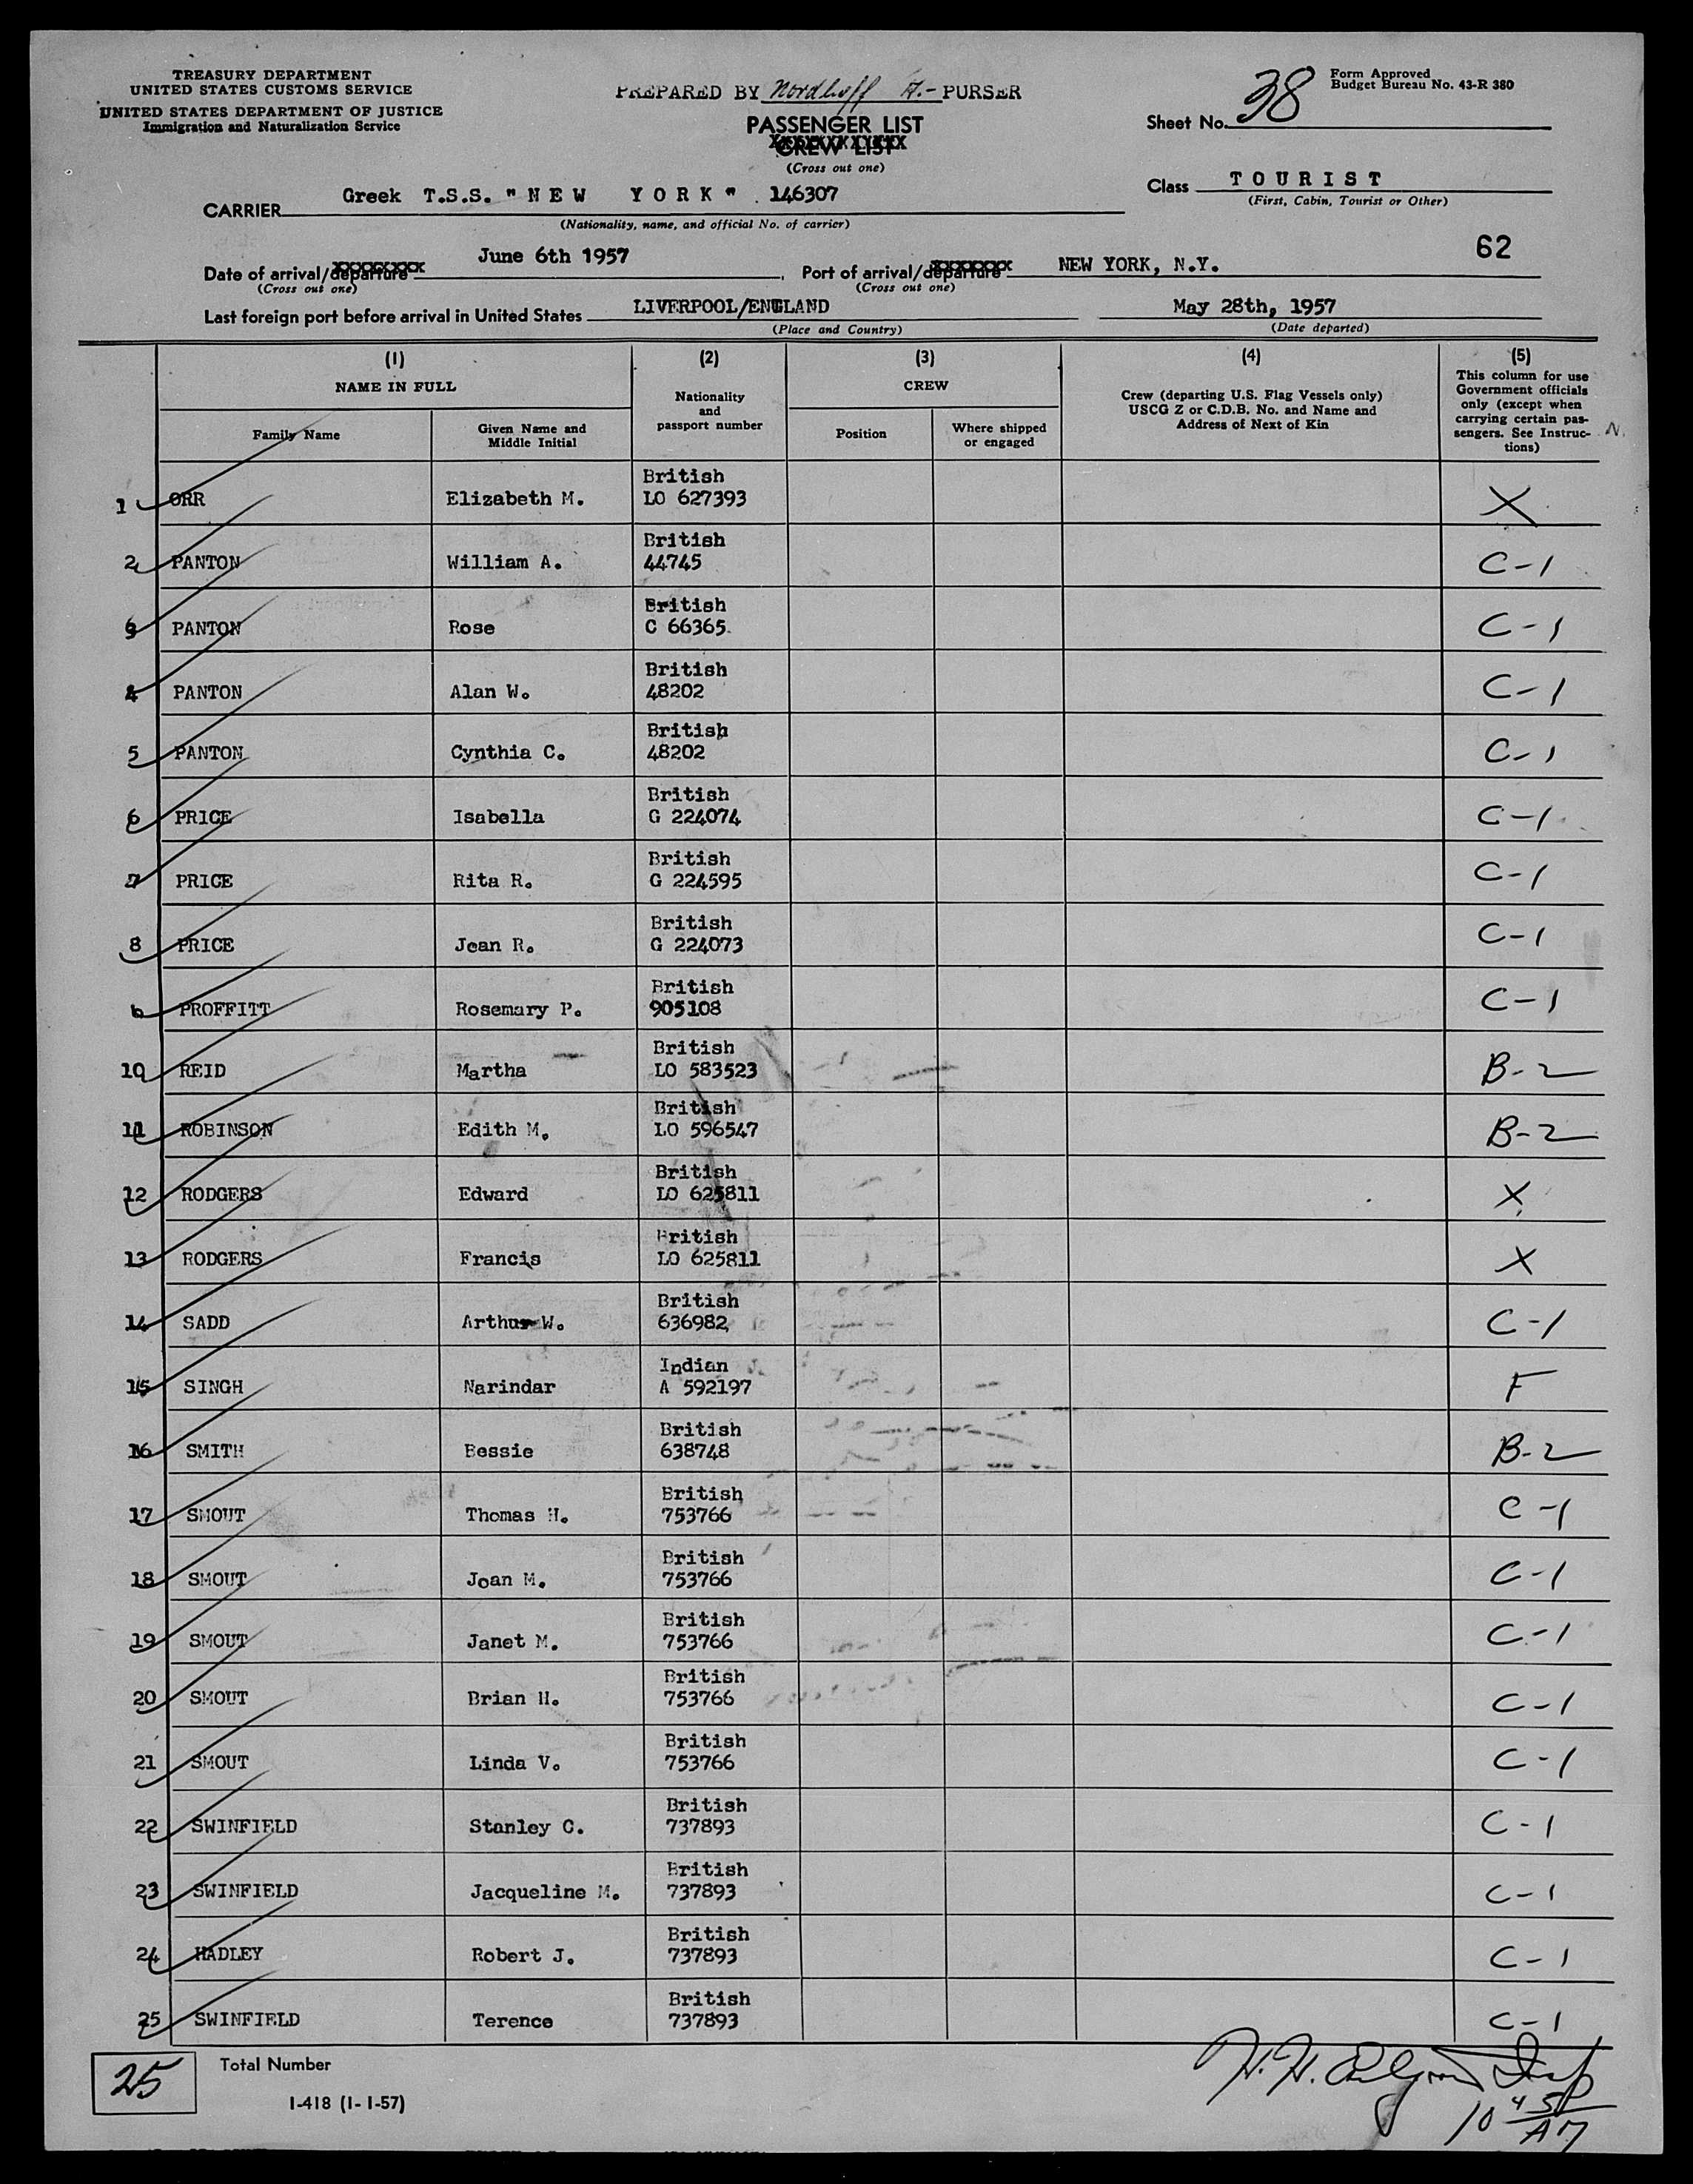 TREASURY DEPARTMENT
UNITED STATES CUSTOMS SERVICE
UNITED STATES DEPARTMENT OF JUSTICE
Immigration and Naturalization Service
PREPARED BY Nordhoff H.- PURSER
PASSENGER LIST
CREW LIST
(Cross out one)
Form Approved
Budget Bureau No. 43-R 380
Sheet No. 38
Class TOURIST
(First, Cabin, Tourist or Other)
CARRIER Greek T.S.S. "NEW YORK" 146307
(Nationality, name, and official No. of carrier)
62
Date of arrival/departure June 6th 1957, Port of arrival/departure NEW YORK, N.Y.
(Cross out one) (Cross out one)
Last foreign port before arrival in United States LIVERPOOL/ENGLAND May 28th, 1957
(Place and Country) (Date departed)
(1) NAME IN FULL
Family Name
Given Name and Middle Initial
(2) Nationality and passport number
(3) CREW
Position
Where shipped or engaged
(4) Crew (departing U.S. Flag Vessels only) USCG Z or C.D.B. No. and Name and Address of Next of Kin
(5) This column for use Government officials only (except when carrying certain passengers. See Instructions)
N.
1 ORR Elizabeth M. British LO 627393 X
2 PANTON William A. British 44745 C-1
3 PANTON Rose British C 66365 C-1
4 PANTON Alan W. British 48202 C-1
5 PANTON Cynthia C. British 48202 C-1
6 PRICE Isabella British G 224074 C-1
7 PRICE Rita R. British G 224595 C-1
8 PRICE Jean R. British G 224073 C-1
PROFFITT Rosemary P. British 905108 C-1
10 REID Martha British LO 583523 B-2
11 ROBINSON Edith M. British LO 596547 B-2
12 RODGERS Edward British LO 625811 X
13 RODGERS Francis British LO 625811 X
14 SADD Arthur W. British 636982 C-1
15 SINGH Narindar Indian A 592197 F
16 SMITH Bessie British 638748 B-2
17 SMOUT Thomas H. British 753766 C-1
18 SMOUT Joan M. British 753766 C-1
19 SMOUT Janet M. British 753766 C-1
20 SMOUT Brian H. British 753766 C-1
21 SMOUT Linda V. British 753766 C-1
22 SWINFIELD Stanley C. British 737893 C-1
23 SWINFIELD Jacqueline M. British 737893 C-1
24 HADLEY Robert J. British 737893 C-1
25 SWINFIELD Terence British 737893 C-1
25 Total Number
I-418 (1-1-57)
H. H. Insp
10 45 AM